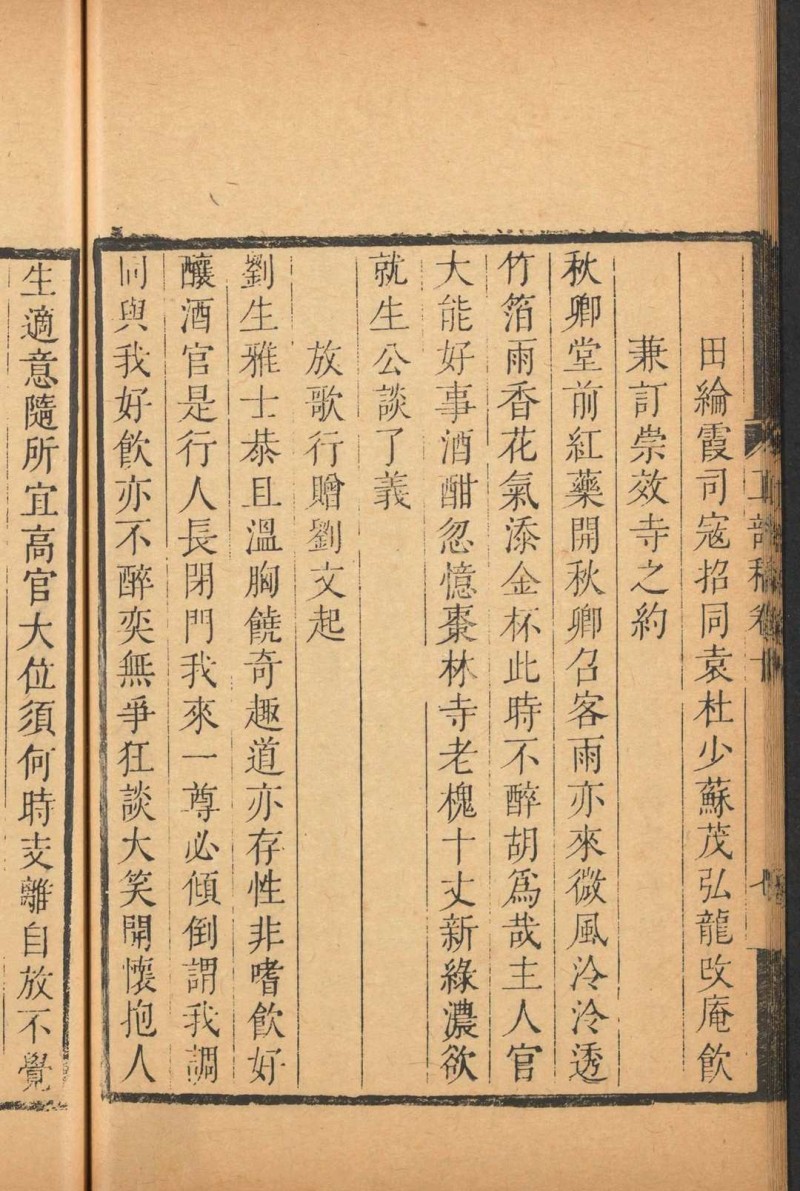 工部稿卷
七
田綸霞司寇招同袁杜少蘇茂弘龍改庵飲
兼訂崇效寺之約
秋卿堂前紅藥開秋卿召客雨亦來微風泠泠透
竹箔雨香花氣添金杯此時不醉胡為哉主人官
大能好事酒酣忽憶棗林寺老槐十丈新綠濃欲
就生公談了義
放歌行贈劉文起
劉生雅士恭且溫胸饒奇趣道亦存性非嗜飲好
釀酒官是行人長閉門我來一尊必傾倒謂我調
同與我好飲亦不醉奕無爭狂談大笑開懷抱人
生適意隨所宜高官大位須何時支離自放不覺